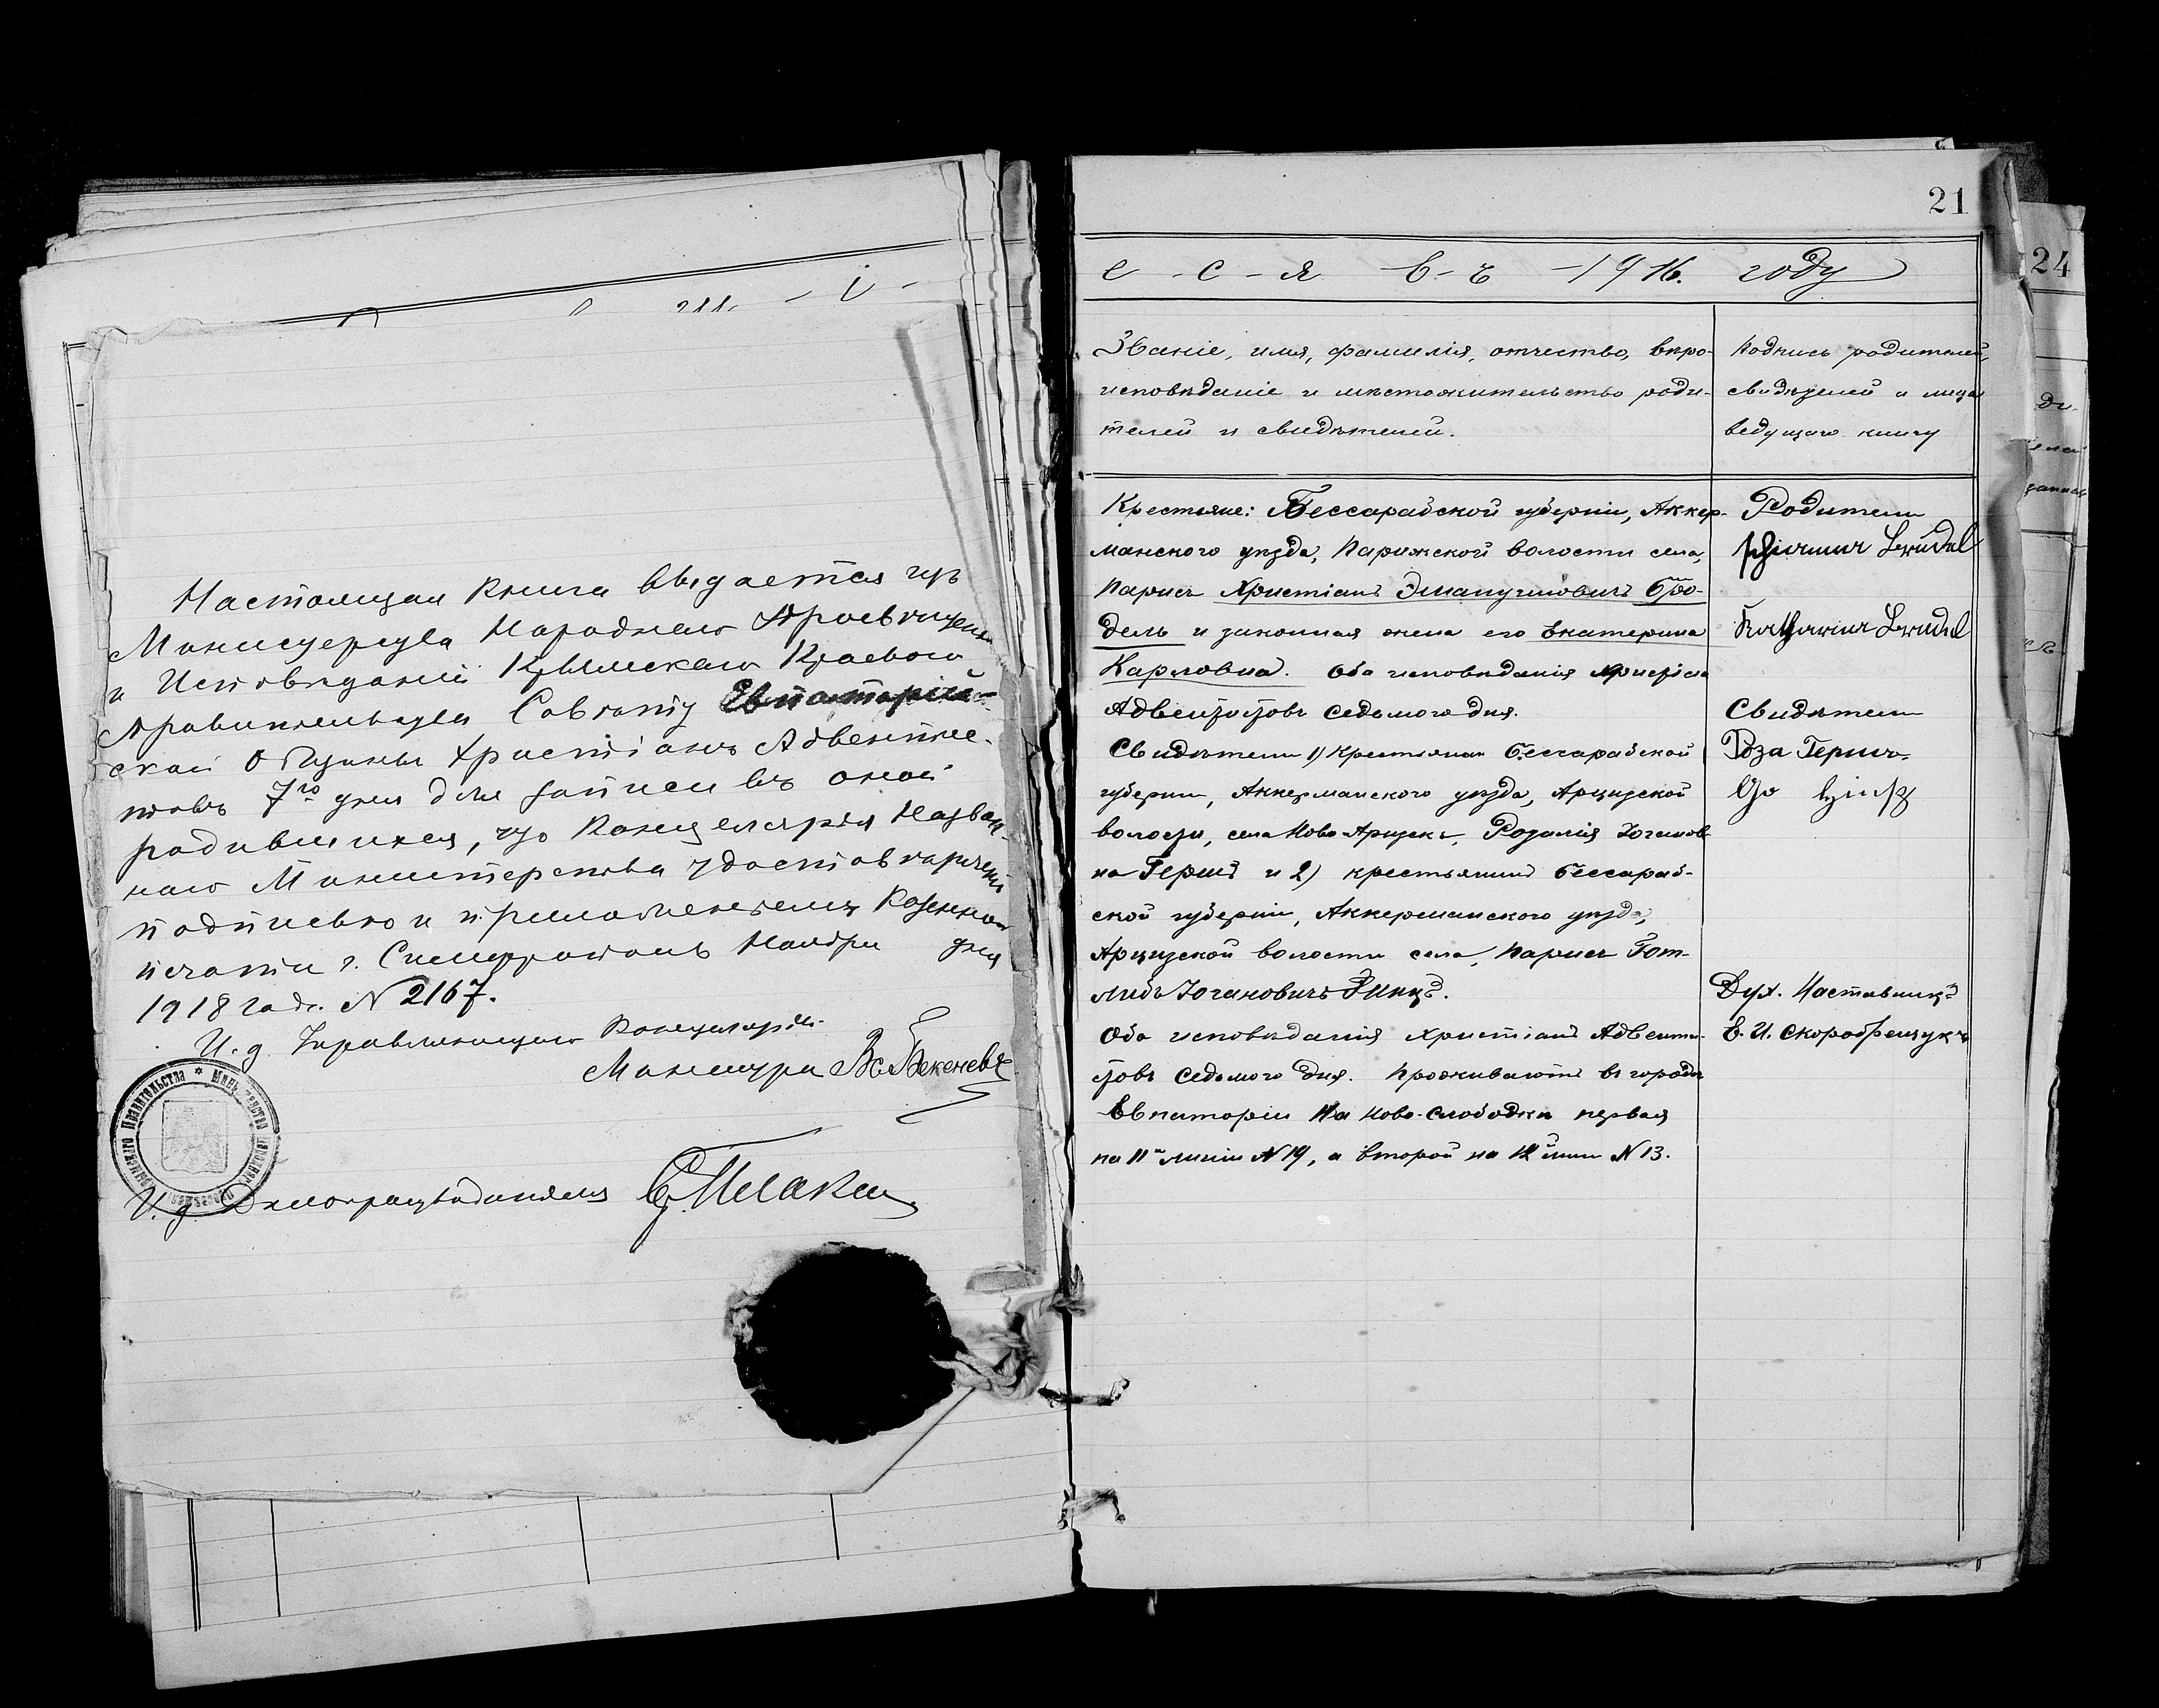 Настоящая книга выдается изъ
Министерства Народнаго Просвѣщенія
и Исповѣданій Крымскаго Краеваго
Правительства Совѣту Евпаторій-
ской Общины Христіанъ Адвенти-
стовъ 7го дня для записи въ оной
родившихся, что Канцелярія Назван-
наго Министерства удостовѣряетъ
подписью и приложеніемъ казенной
печати г. Симферополь Ноября дня
1918 года. N 2167.
И. д. Управляющаго Канцеляріи
Министра
И. д. Дѣлопроизводителя
21
24
е - с - я - в - ъ - 1916. году
Званіе, имя, фамилія, отчество, вѣро-
исповѣданіе и мѣстожительство роди-
телей и свидѣтелей.
Подпись родителей,
свидѣтелей и лица
ведущаго книгу
Крестьяне: Бессарабской губерніи, Аккер-
манского уѣзда, Парижской волости села,
Парижъ Христіанъ Эмануиловичъ
дель и законная жена его Екатерина
Карловна. Оба исповѣданія Христіан
Адвентистовъ седьмого дня.
Свидѣтели 1) крестьянка Бессарабской
губерніи, Аккерманского уѣзда, Арцизской
волости, села Ново Арцизъ, Розалія Іоганов-
на Герцъ и 2) крестьянинъ Бессараб-
ской губерніи, Аккерманского уѣзда,
Арцизской волости села, Парижъ Гот-
либъ Іогановичъ Гинцъ.
Оба исповѣданія Христіанъ Адвенти-
стовъ Седьмого Дня. Проживаютъ въ городѣ
Евпаторіи На Ново-Слободкѣ первая
на 11й линіи N 19, а второй на 12й линіи N 13.
Родители
Katharina
Свидѣтели
Роза Герцъ
Дух. Наставникъ
Е. И. Скоробрещукъ